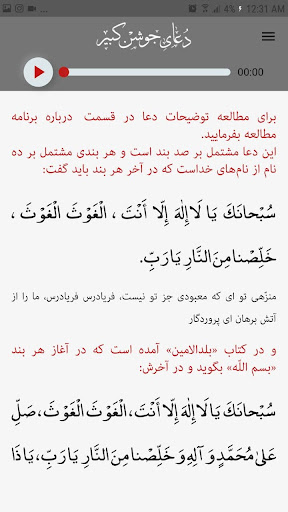 4% 12:31 AM
دُعای جوشن کبیر
00:00
برای مطالعه توضیحات دعا در قسمت درباره برنامه
مطالعه بفرمایید.
این دعا مشتمل بر صد بند است و هر بندی مشتمل بر ده
نام از نام‌های خداست که در آخر هر بند باید گفت:
سُبْحانَكَ يَا لَا إِلٰهَ إِلّا أَنْتَ ، الْغَوْثَ الْغَوْثَ ،
خَلِّصْنا مِنَ النَّارِ يَا رَبِّ.
منزّهی تو ای که معبودی جز تو نیست، فریادرس فریادرس، ما را از
آتش برهان ای پروردگار
و در کتاب «بلدالامین» آمده است که در آغاز هر بند
«بسم اللّه» بگوید و در آخرش:
سُبْحانَكَ يَا لَا إِلٰهَ إِلّا أَنْتَ، الْغَوْثَ الْغَوْثَ، صَلِّ
عَلىٰ مُحَمَّدٍ وَ آلِهِ وَ خَلِّصْنا مِنَ النَّارِ يَا رَبِّ، يَا ذَا